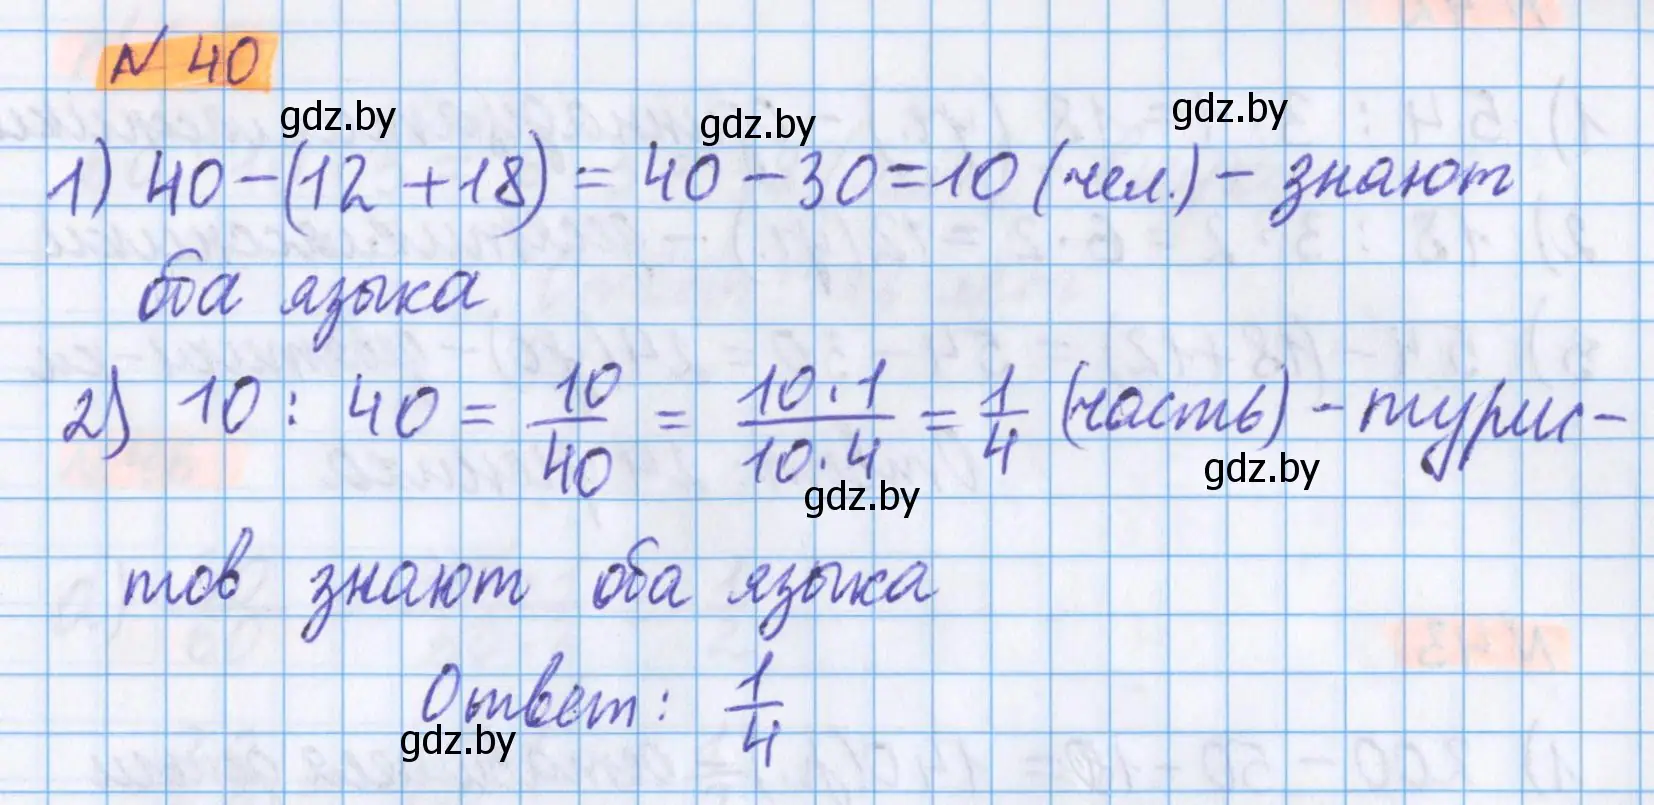 № 40
gdz.by gdz.by gdz.by
1) 40 – (12 + 18) = 40 – 30 = 10 (чел.) – знают
оба языка
2) 10 : 40 = 10/40 = 10·1/10·4 = 1/4 (часть) – турис-
gdz.by gdz.by
тов знают оба языка
Ответ: 1/4
gdz.by